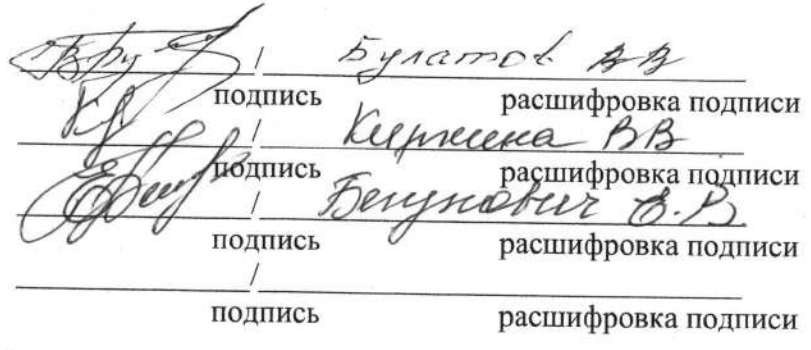 / Булатов ВВ
подпись расшифровка подписи
/ Киркина ВВ
подпись расшифровка подписи
/ Бегунович Е.В.
подпись расшифровка подписи
/
подпись расшифровка подписи